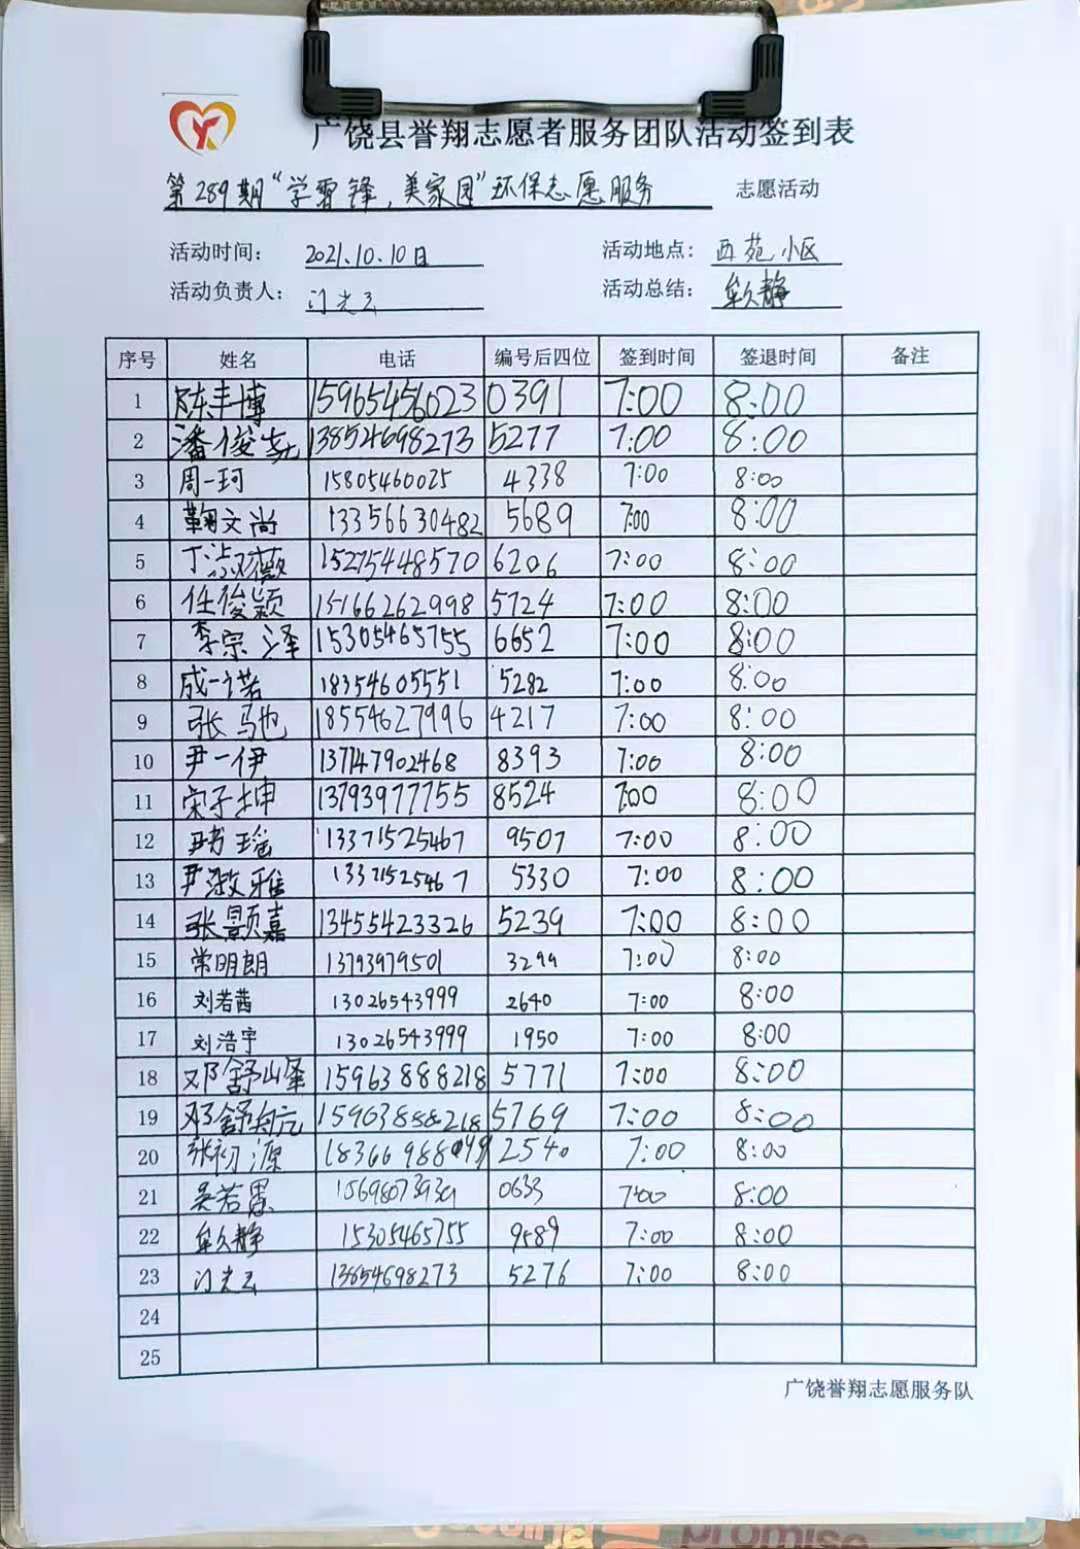 广饶县誉翔志愿者服务团队活动签到表
第289期“学雷锋，美家园”环保志愿服务 志愿活动
活动时间： 2021.10.10日 活动地点： 西苑小区
活动负责人： 门光云 活动总结： 牟久静
序号 姓名 电话 编号后四位 签到时间 签退时间 备注
1 陈丰博 15965456023 0391 7:00 8:00
2 潘俊 13854698273 5277 7:00 8:00
3 周一珂 15805460025 4338 7:00 8:00
4 鞠文尚 13356630482 5689 7:00 8:00
5 丁淑薇 15275448570 6206 7:00 8:00
6 任俊颖 15166262998 5724 7:00 8:00
7 李宗泽 15305465755 6652 7:00 8:00
8 成一诺 18354605551 5282 7:00 8:00
9 张驰 18554627996 4217 7:00 8:00
10 尹一伊 137147902468 8393 7:00 8:00
11 宋子坤 13793977755 8524 7:00 8:00
12 尹 瑶 13371525467 9507 7:00 8:00
13 尹淑雅 13371525467 5330 7:00 8:00
14 张颢嘉 13455423326 5239 7:00 8:00
15 常明朗 13793979501 3299 7:00 8:00
16 刘若茜 13026543999 2640 7:00 8:00
17 刘浩宇 13026543999 1950 7:00 8:00
18 邓舒山峰 15963888218 5771 7:00 8:00
19 邓舒 15963888218 5769 7:00 8:00
20 张初源 2540 7:00 8:00
21 吴若愚 15698073939 0633 7:00 8:00
22 牟久静 15305465755 9589 7:00 8:00
23 门光云 13854698273 5276 7:00 8:00
24
25
广饶誉翔志愿服务队
promise